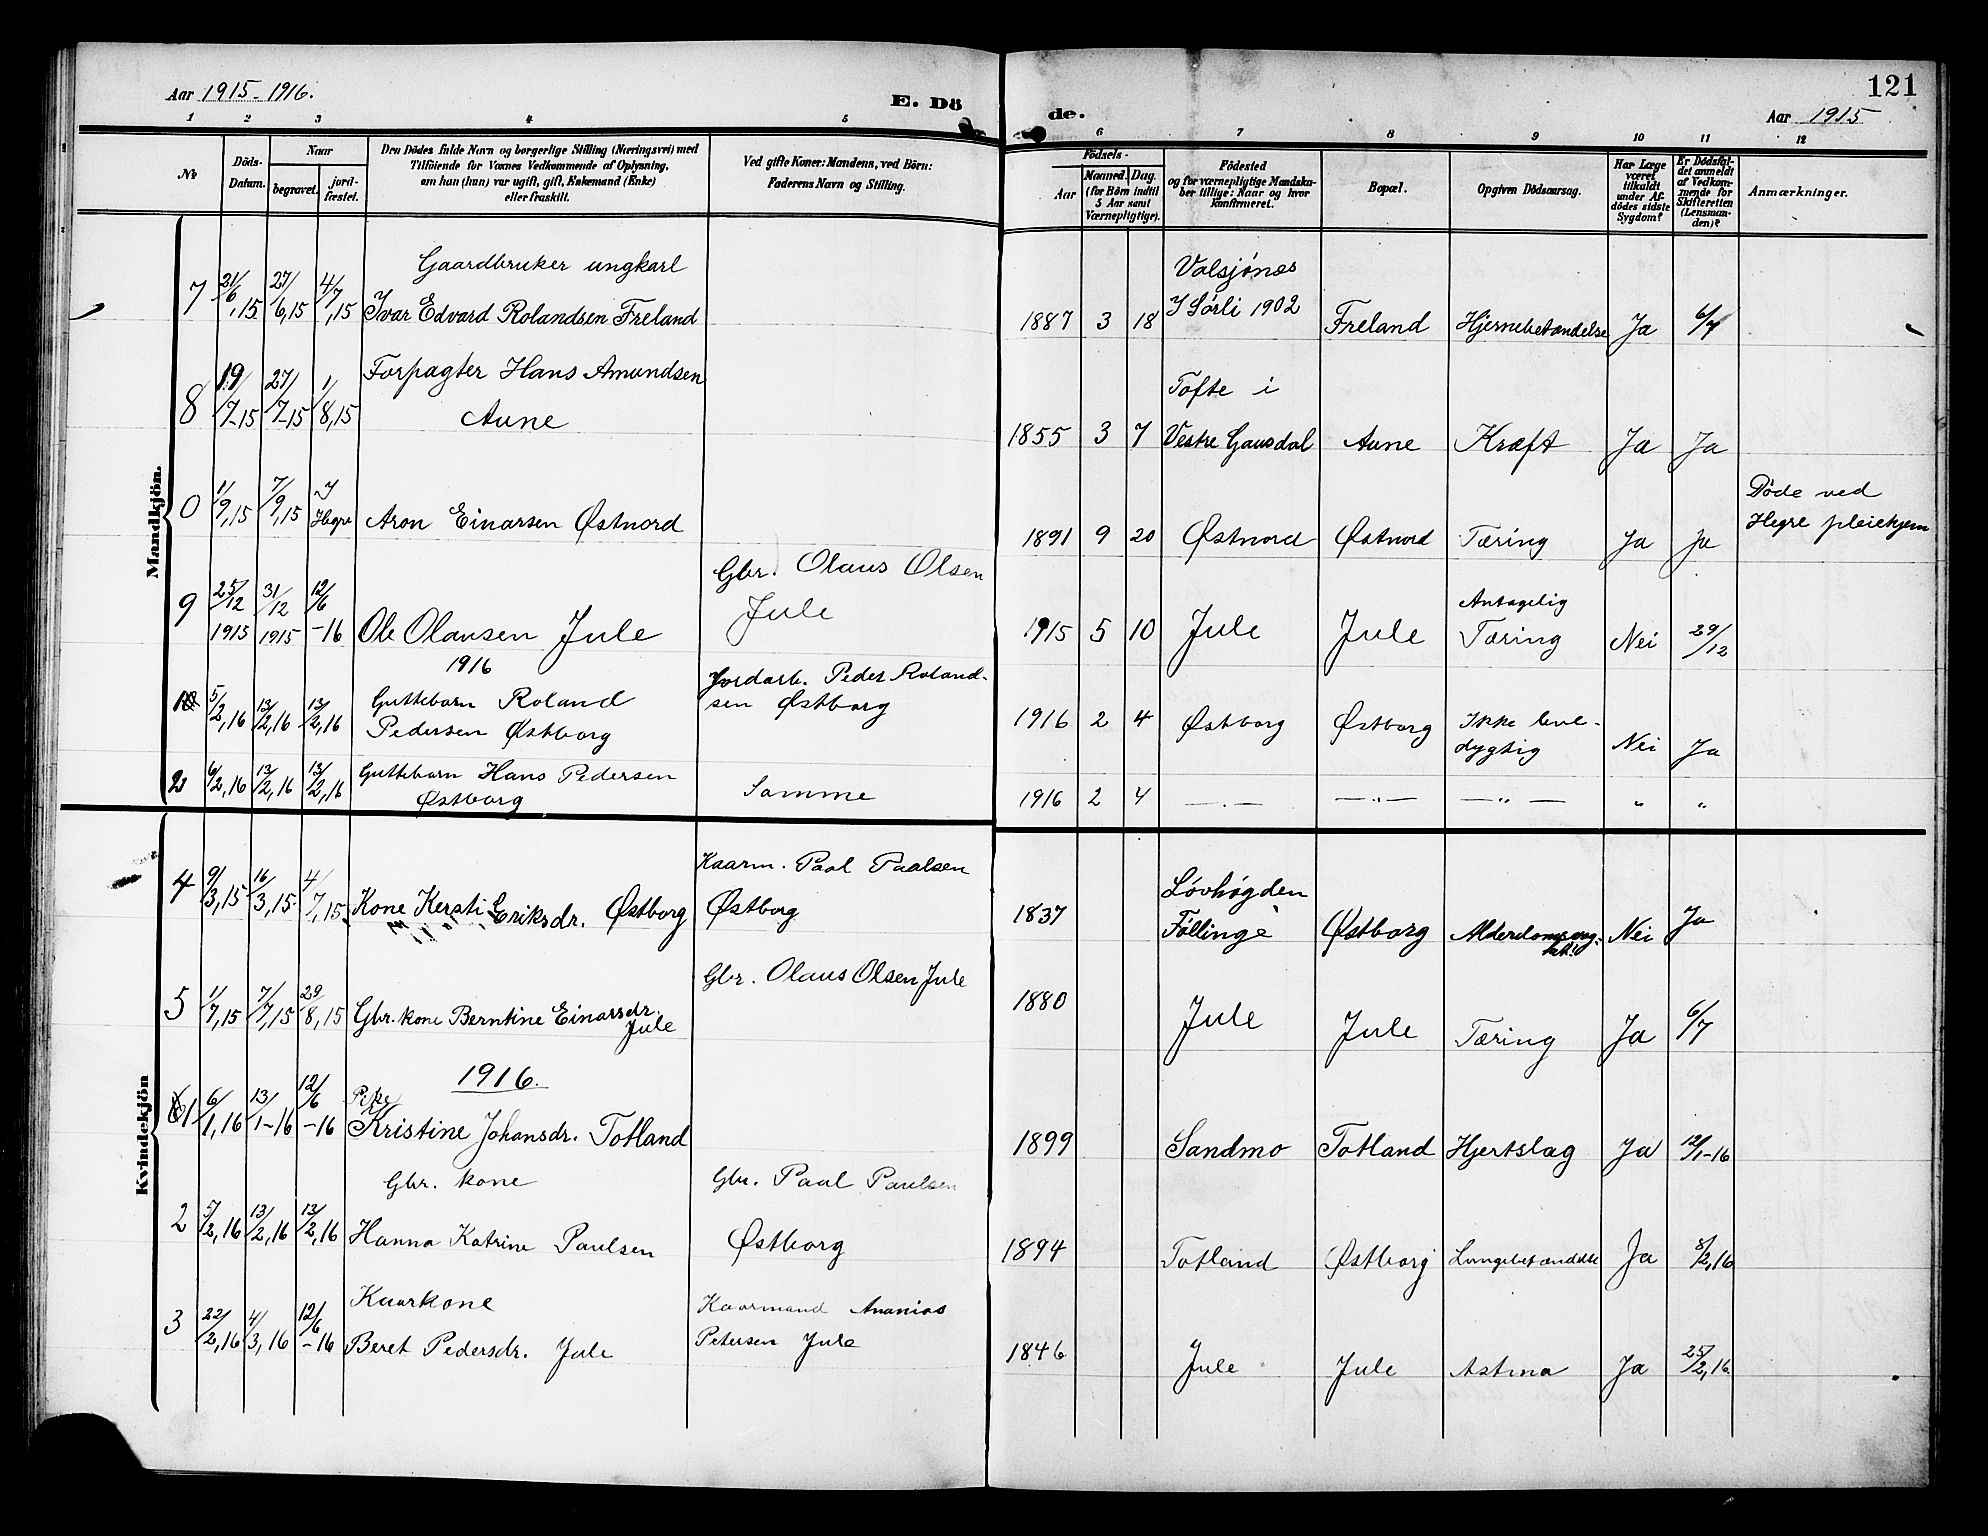 Aar 1915-1916.
E. Dö
de.
121
Aar 1915
1 2 3 4 5 6 7 8 9 10 11 12
No
Döds-
Datum.
Naar
begravet.
jord-
fæstet.
Den Dödes fulde Navn og borgerlige Stilling (Næringsvei) med
Tilföiende for Voxnes Vedkommende af Oplysning,
om han (hun) var ugift, gift, Enkemand (Enke)
eller fraskilt.
Ved gifte Koner: Mandens, ved Börn:
Faderens Navn og Stilling.
Födsels-
Aar
Maaned. Dag.
(for Börn indtil
5 Aar samt
Værnepligtige).
Födested
og for værnepligtige Mandska-
ber tillige: Naar og hvor
konfirmeret.
Bopæl.
Opgiven Dödsaarsag.
Har Læge
været
tilkaldt
under Af-
dödes sidste
Sygdom?
Er Dödsfal-
det anmeldt
af Vedkom-
mende for
Skifteretten
(Lensman-
den)?
Anmærkninger.
Mandkjön.
Gaardbruker ungkarl
7 21/6,15 27/6,15 4/7,15 Ivar Edvard Rolandsen Freland
Valsjönes
1887 3 18 I Sörli 1902 Freland Hjernebetændelse Ja 6/7
Forpagter Hans Amundsen
8 19/7-15 27/7-15 1/8,15 Aune
Tofte i
1855 3 7 Vestre Gausdal Aune Kræft Ja Ja
0 1/9,15 7/9,15 I Hegre Aron Einarsen Østnord
1891 9 20 Østnord Østnord Tæring Ja Ja
Døde ved
Hegre pleiehjem
Gbr. Olaus Olsen
Jule
9 25/12 1915 31/12 1915 12/6-16 Ole Olausen Jule
Antagelig
1915 5 10 Jule Jule Tæring Nei 29/12
1916
1 5/2,16 13/2,16 13/2,16 Guttebarn Roland
Pedersen Østborg
Jordarb. Peder Roland-
sen Østborg
1916 2 4 Østborg Østborg Ikke leve-
dygtig Nei Ja
2 6/2,16 13/2,16 13/2,16 Guttebarn Hans Pedersen
Østborg
Samme
1916 2 4 — . — — „ — — „ — „ „
Kvindekjön
4 9/3,15 16/3,15 4/7,15 Kone Kersti Eriksdr. Østborg
Kaarm. Paal Paalsen
Østborg
Lövhögden
1837 Föllinge Østborg Nei Ja
Gbr. Olaus Olsen Jule
5 1/7,15 7/7,15 29/8,15 Gbr. kone Berntine Einarsdr.
Jule
1880 Jule Jule Tæring Ja 6/7
1916.
Pike
1 6/1,16 13/1-16 12/6-16 Kristine Johansdr. Totland
1899 Sandmo Totland Hjertslag Ja 12/1-16
Gbr. kone
Gbr. Paal Paulsen
2 5/2,16 13/2,16 13/2,16 Hanna Katrine Paulsen
Østborg
1894 Totland Østborg Lungebetændelse Ja 8/2,16
Kaarkone
3 22/2,16 4/3,16 12/6-16 Beret Pedersdr. Jule
Kaarmand Ananias
Petersen Jule
1846 Jule Jule Astma Ja 25/2,16.